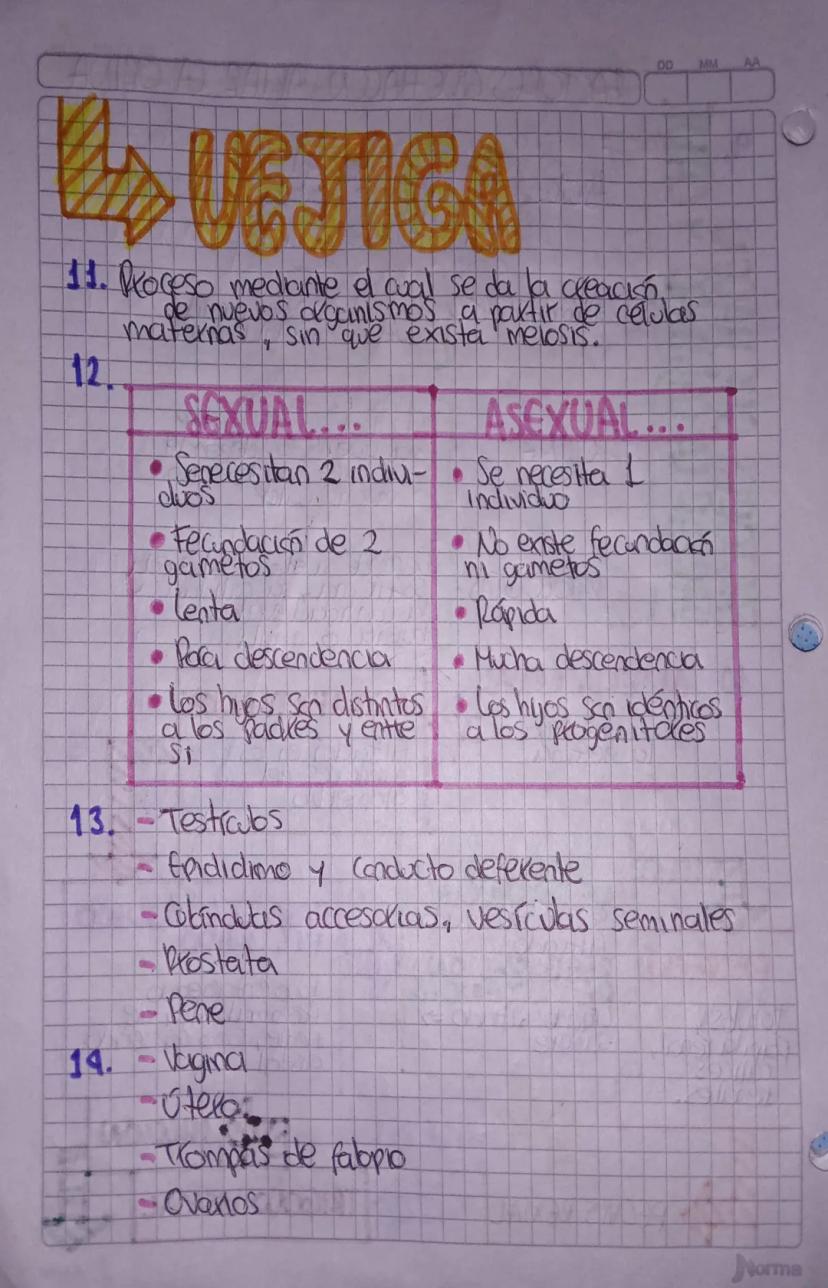 DD MM AA
VEJIGA
11. Proceso mediante el cual se da la creación
de nuevos organismos a partir de células
maternas, sin que exista meiosis.
12.
SEXUAL...
• Se necesitan 2 indivi-
duos
• Fecundación de 2
gametos
• Lenta
• Poca descendencia
• Los hijos son distintos
a los padres y entre
si
ASEXUAL...
• Se necesita 1
individuo
• No existe fecundación
ni gametos
• Rápida
• Mucha descendencia
• Los hijos son idénticos
a los progenitores
13. - Testículos
- Epididimo y conducto deferente
- accesorias, vesículas seminales
- Prostata
- Pene
14. - Vagina
- Útero
- Trompas de falopio
- Ovarios
Norma